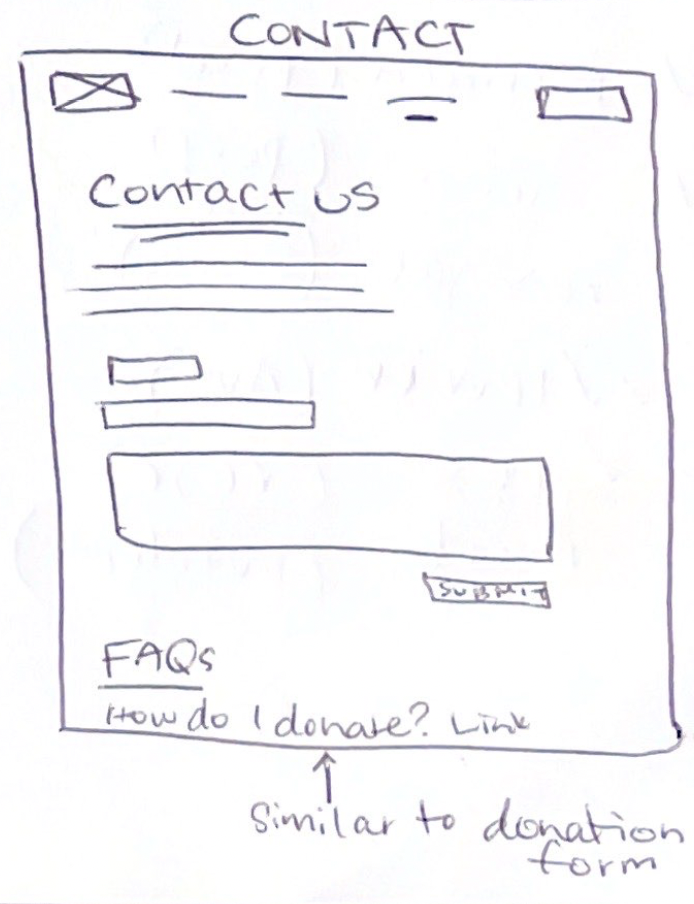 CONTACT
Contact us
SUBMIT
FAQs
How do I donate? Link
Similar to donation
form